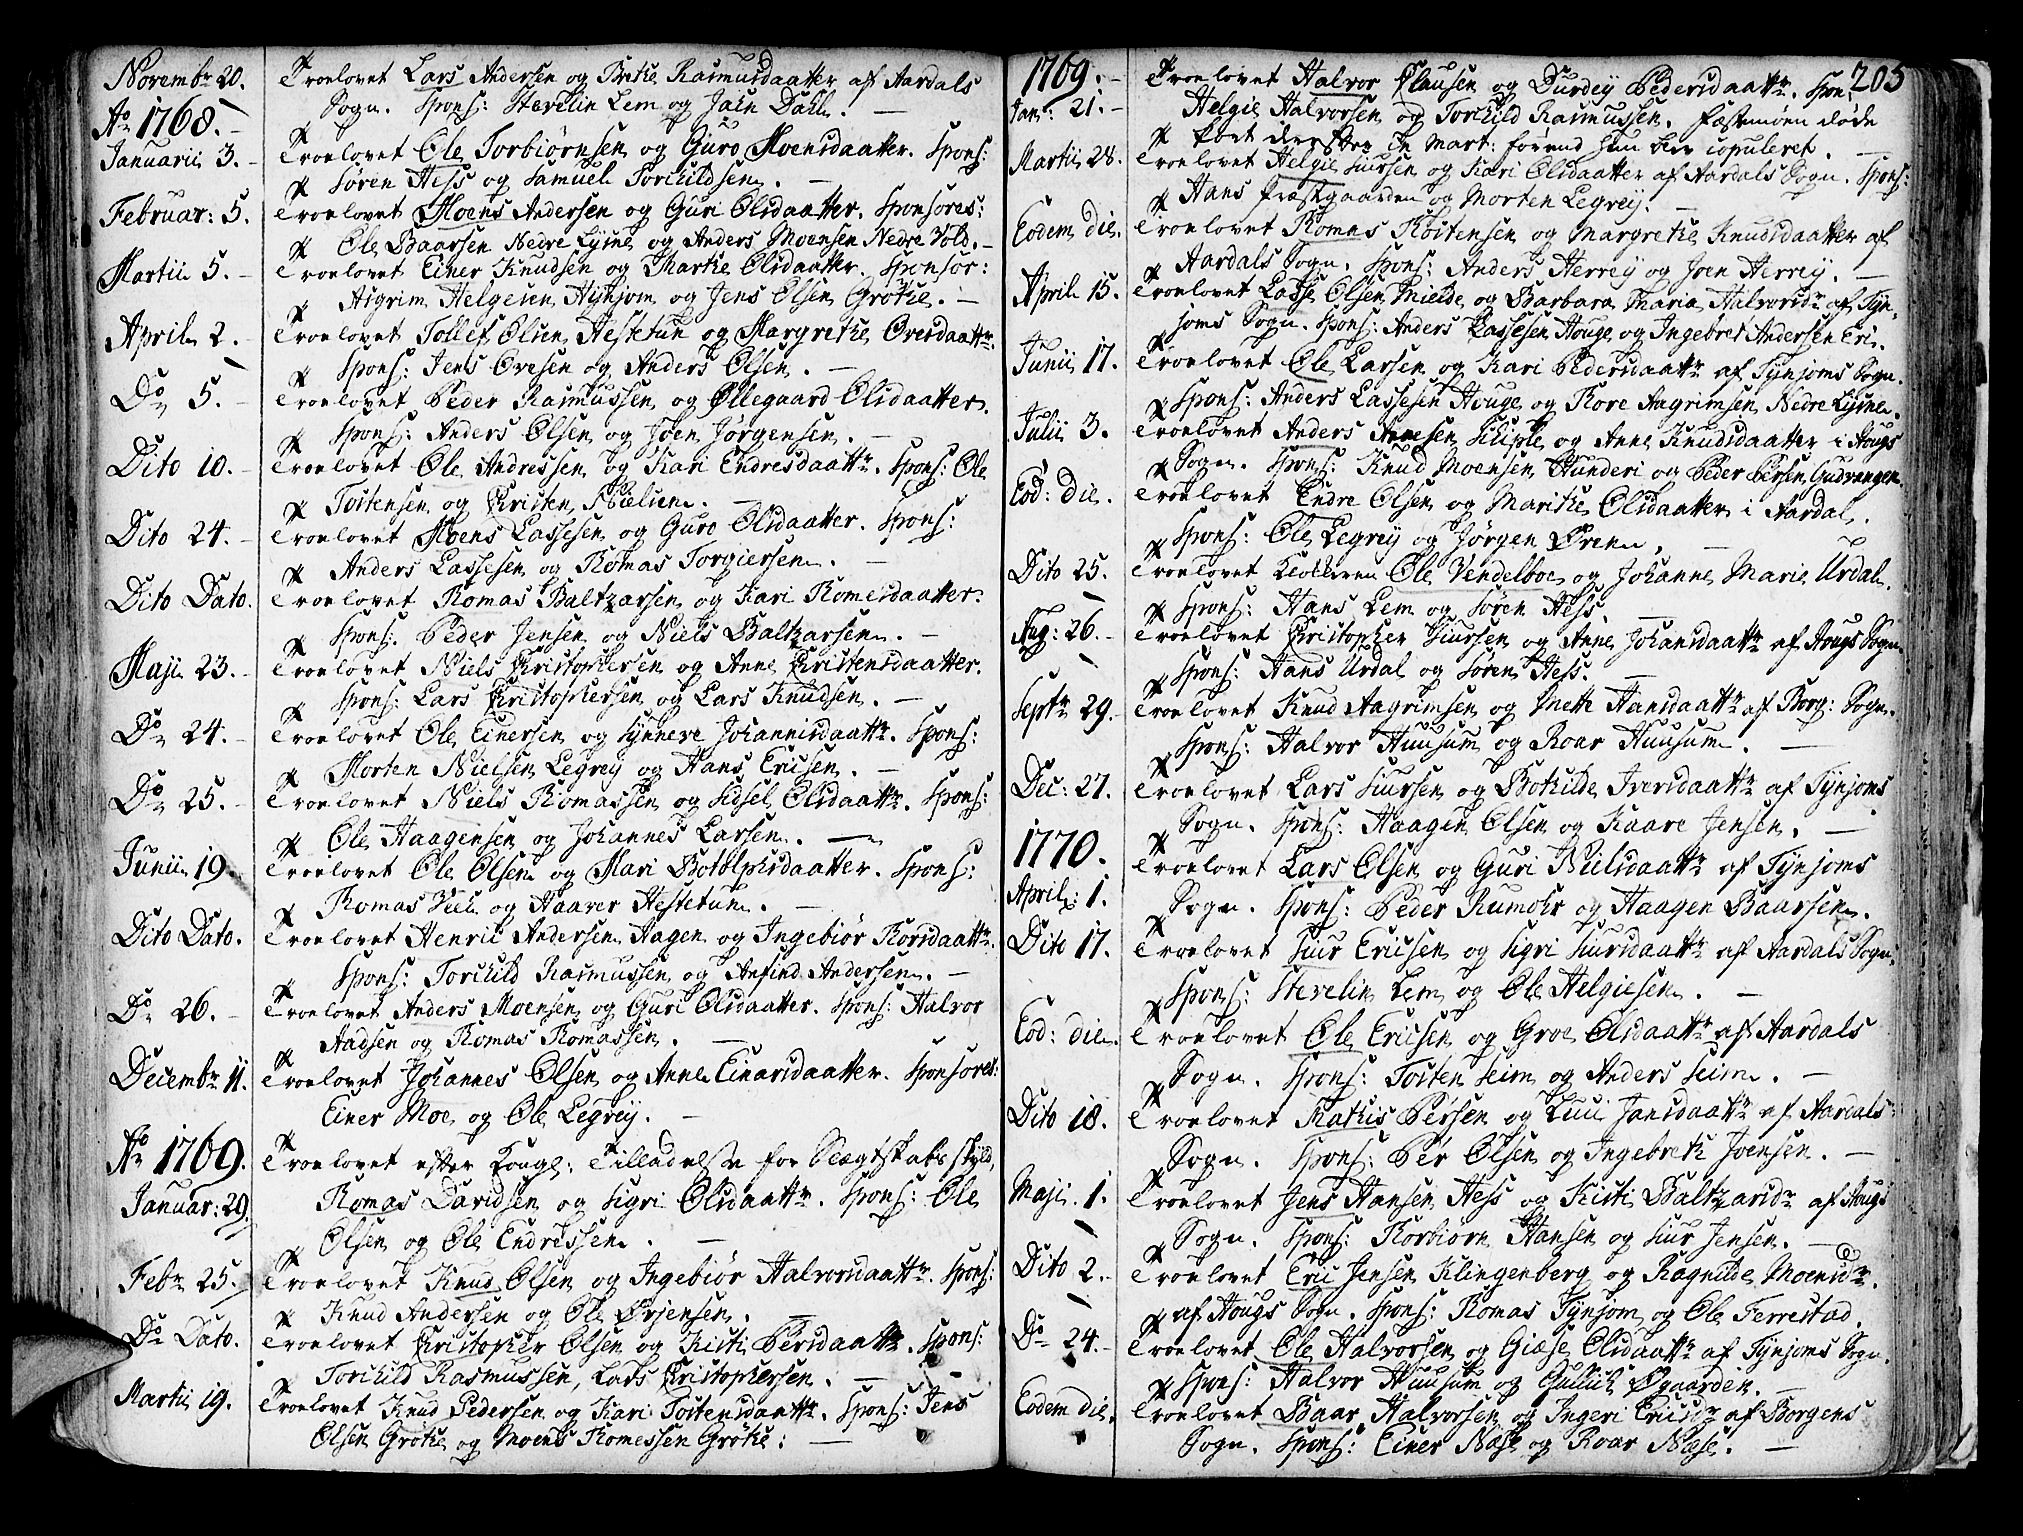 Novembr 20. Troelovet Lars Andersen og Brithe Rasmusdaatter af Aardals
Sogn. Spons: Stevelin Lem og Jahn Dahl. —
Ao 1768. —
Januarii 3. — Troelovet Ole Torbiørnsen og Guro Moensdaatter. Spons:
Søren Hess og Samuel Torchildsen. —
Februar: 5. Troelovet Moens Andersen og Guri Olsdaatter. Sponsores:
Ole Baarsen Nedre Lysne og Anders Moensen Nedre Vold. —
Martii 5. — Troelovet Einer Knudsen og Marthe Olsdaatter. Sponsor:
Asgrim Helgesen Hythjom og Jens Olsen Grothe. —
April 2. Troelovet Tollef Olsen Hestetun og Margrethe Ovesdaattr.
Spons: Jens Ovesen og Anders Olsen. —
Do 5. — Troelovet Peder Rasmussen og Øllegaard Olsdaatter.
Spons: Anders Olsen og Joen Jørgensen. —
Dito 10. — Troelovet Ole Andressen og Kari Endresdaattr. Spons: Ole
Tostensen og Christen Nielsen. —
Dito 24. — Troelovet Moens Lassesen og Guro Olsdaatter. Spons:
Anders Lassesen og Thomas Torgiersen. —
Dito Dato. Troelovet Thomas Baltzarsen og Kari Thomesdaatter.
Spons: Peder Jensen og Niels Baltzarsen. —
Maji 23. — Troelovet Niels Christophersen og Anne Christensdaatter.
Spons: Lars Christophersen og Lars Knudsen. —
Do 24. — Troelovet Ole Einersen og Synneve Johannisdaattr. Spons:
Morten Nielsen Legrey og Hans Ericsen. —
Do 25. — Troelovet Niels Thomassen og Sidsel Olsdaattr. Spons:
Ole Haagensen og Johannes Larsen. —
Junii 19. Troelovet Ole Olsen og Mari Botolphsdaatter. Spons:
Thomas Vee og Haaver Hestetun. —
Dito Dato. Troelovet Henric Andersen Hagen og Ingebiør Thorsdaattr.
Spons: Torchild Rasmussen og Anfind Andersen. —
Do 26. — Troelovet Anders Moensen og Guri Olsdaatter. Spons: Halvor
Aadsen og Thomas Thomassen. —
Decembr 11. Troelovet Johannes Olsen og Anne Einarsdaatter. Sponsores:
Einer Moe og Ole Legrey. —
Ao 1769. Troelovet efter Kongl: Tilladelse for Slægtskabs skyld,
Januar: 29. Thomas Davidsen og Sigri Olsdaattr. Spons: Ole
Olsen og Ole Endressen. —
Febr 25. Troelovet Knud Olsen og Ingebiør Halvorsdaattr. Spons:
Knud Andersen og Ole Ørjensen.
Do Dato. Troelovet Christopher Olsen og Kisti Persdaattr. Spons:
Torchild Rasmussen, Lars Christophersen. —
Martii 19. Troelovet Knud Pedersen og Kari Tostensdaattr. Spons: Jens
Olsen Grothe og Moens Thomessen Grothe: —
205
1769. — Troelovet Halvor Clausen og Durdey Pedersdaattr. Spon
Jan: 21. — Helgie Halvorsen og Torchild Rasmussen. Fæstemøen døde
kort derefter in Mart: forend hun blev copuleret. —
Martii 28. Troelovet Helgie Siursen og Kari Olsdaatter af Aardals Sogn. Spons:
Hans Præstgaarden og Morten Legrey. —
Eodem die. Troelovet Thomas Thostensen og Margrethe Knudsdaatter af
Aardals Sogn. Spons: Anders Herrey og Joen Herrey. —
April 15. Troelovet Lasse Olsen Mielde og Barbara Maria Halvorsdr af Tyn-
joms Sogn. Spons: Anders Lassesen Houge og Ingebret Andersen Eri.
Junii 17. Troelovet Ole Larsen og Kari Pedersdaattr af Tynjoms Sogn.
Spons: Anders Lassesen Houge og Thore Aagrimsen Nedre Lysne.
Julii 3. Troelovet Anders Annesen Skiple og Anne Knudsdaatter i Hougs
Sogn. Spons: Knud Moensen Hunderi og Peder Persen Gudvangen.
Eod: die. Troelovet Endre Olsen og Marithe Olsdaatter i Aardal.
Spons: Ole Legrey og Jørgen Øren. —
Dito 25. Troelovet Klokkeren Ole Vendelboe og Johanne Marie Urdal.
Spons: Hans Lem og Søren Hess. —
Aug: 26. — Troelovet Christopher Siursen og Anne Johansdaattr af Hougs Sogn.
Spons: Hans Urdal og Søren Hess. —
Septr 29. Troelovet Knud Aagrimsen og Mette Hansdaattr af Borg: Sogn.
Spons: Halvor Huusum og Roar Huusum. —
Dec: 27. Troelovet Lars Siursen og Bothilde Iversdaattr af Tynjoms
Sogn. Spons: Haagen Olsen og Kaare Jensen. —
1770. Troelovet Lars Olsen og Guri Nielsdaattr af Tynjoms
April: 1. Sogn. Spons: Peder Rumohr og Haagen Baarsen.
Dito 17. Troelovet Siur Ericsen og Sigri Siursdaattr af Aardals Sogn.
Spons: Stevelin Lem og Ole Helgiesen. —
Eod: die. Troelovet Ole Ericsen og Groe Olsdaattr af Aardals
Sogn. Spons: Tosten Seim og Anders Seim. —
Dito 18. Troelovet Mathis Persen og Luci Jansdaattr af Aardals
Sogn. Spons: Per Olsen og Ingebreth Joensen. —
Maji 1. Troelovet Jens Hansen Hess og Kisti Baltzarsdr af Hougs
Sogn. Spons: Thorbiørn Hansen og Siur Jensen. —
Dito 2. Troelovet Eric Jensen Klingenberg og Ragnilde Moensdr.
af Hougs Sogn. Spons: Thomas Tynjom og Ole Ferrestad.
Do 24. — Troelovet Ole Halvorsen og Giæse Olsdaattr af Tynjoms Sogn.
Spons: Halvor Huusum og Gullich Øygarden. —
Eodem die. Troelovet Baar Halvorsen og Ingeri Ericsdr af Borgens
Sogn. Spons: Einer Næse og Roar Næse. —